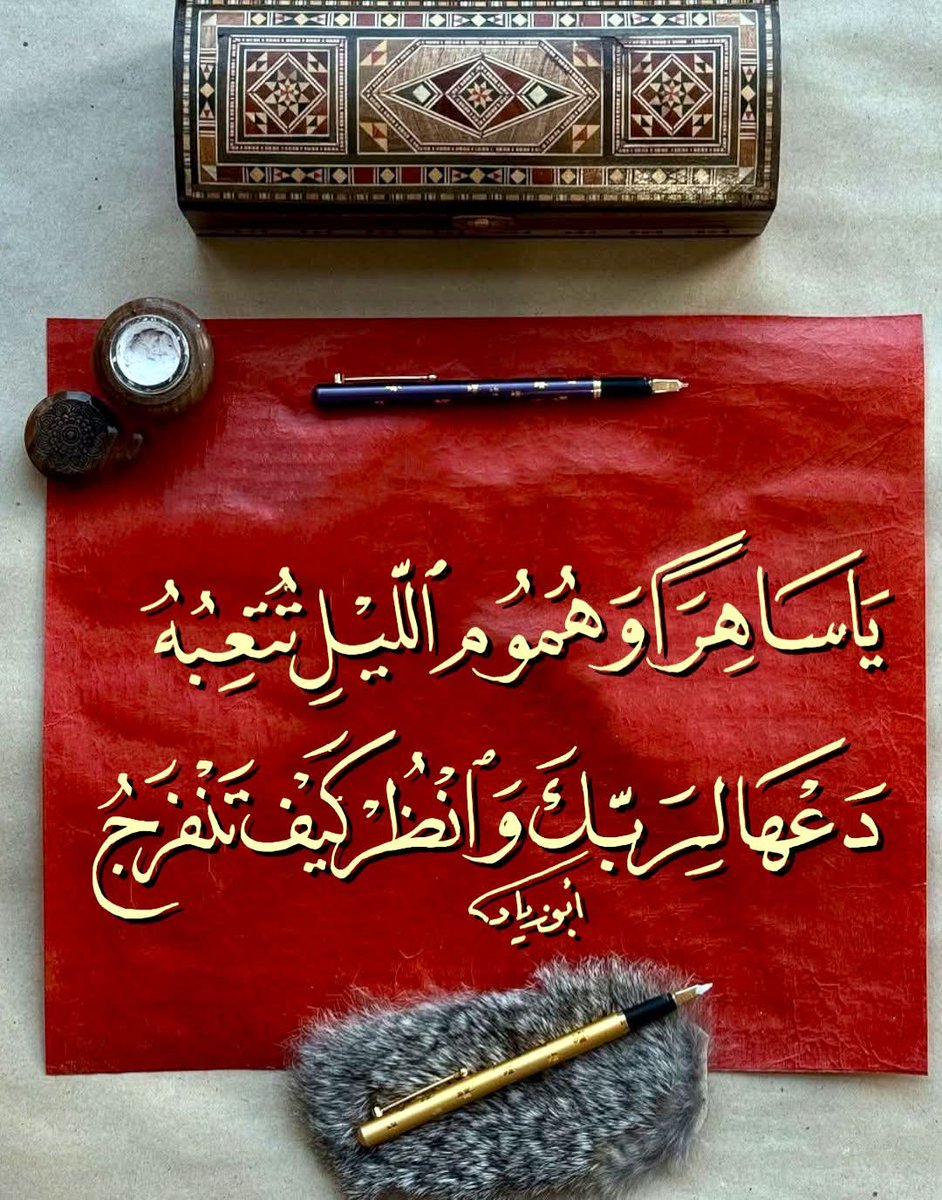 يَاسَاهِرًا وَهُمُومُ ٱللَّيْلِ تُتْعِبُهُ
دَعْهَا لِرَبِّكَ وَٱنْظُرْ كَيْفَ تَنْفَرِجُ
أبوزياد